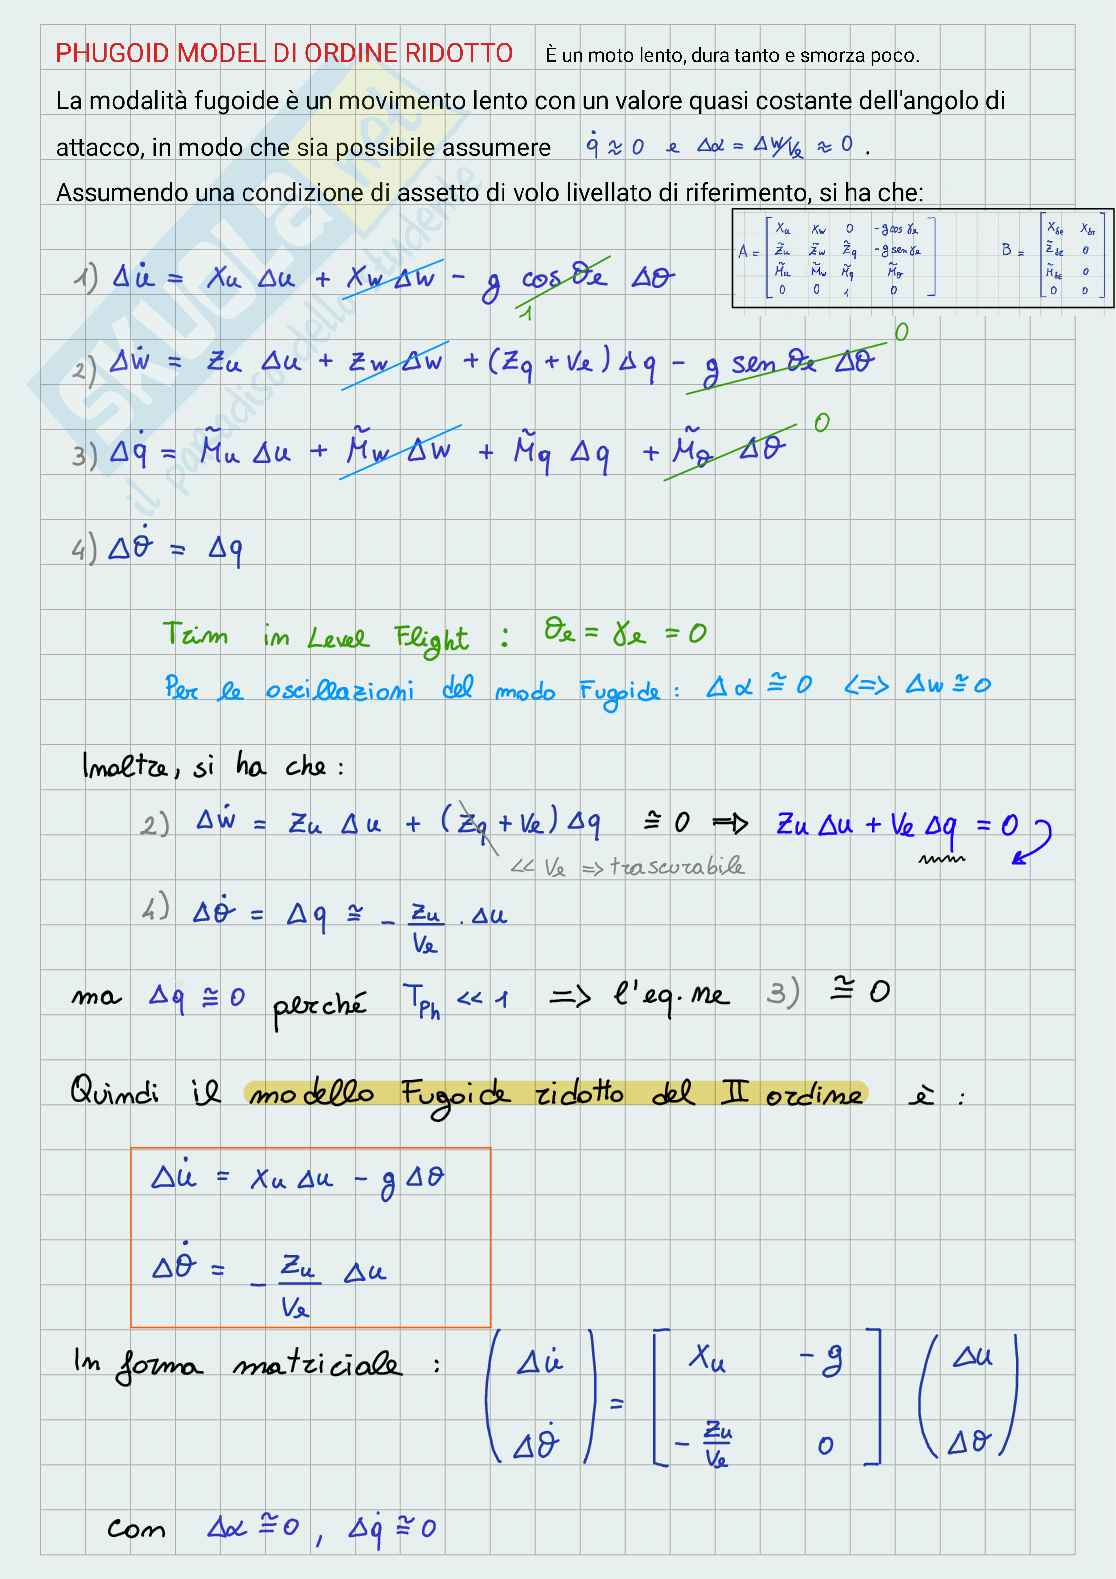 PHUGOID MODEL DI ORDINE RIDOTTO È un moto lento, dura tanto e smorza poco.
La modalità fugoide è un movimento lento con un valore quasi costante dell'angolo di
attacco, in modo che sia possibile assumere q̇ ≈ 0 e Δα = Δw/Ve ≈ 0 .
Assumendo una condizione di assetto di volo livellato di riferimento, si ha che:
A = [ Xu Xw 0 -g cos γe
Z̃u Z̃w Z̃q -g sen γe
M̃u M̃w M̃q M̃θ
0 0 1 0 ]
B = [ Xδe XδT
Z̃δe 0
M̃δE 0
0 0 ]
1) Δu̇ = Xu Δu + Xw Δw - g cos θe Δθ
1
2) Δẇ = Zu Δu + Zw Δw + (Zq + Ve) Δq - g sen θe Δθ 0
3) Δq̇ = M̃u Δu + M̃w Δw + M̃q Δq + M̃θ Δθ 0
4) Δθ̇ = Δq
Trim in Level Flight : θe = γe = 0
Per le oscillazioni del modo Fugoide : Δα ≅ 0 <=> Δw ≅ 0
Inoltre, si ha che :
2) Δẇ = Zu Δu + (Zq + Ve) Δq ≅ 0 => Zu Δu + Ve Δq = 0
<< Ve => trascurabile
4) Δθ̇ = Δq ≅ - Zu/Ve · Δu
ma Δq ≅ 0 perché TPh << 1 => l'eq.ne 3) ≅ 0
Quindi il modello Fugoide ridotto del II ordine è :
Δu̇ = Xu Δu - g Δθ
Δθ̇ = - Zu/Ve Δu
In forma matriciale : (Δu̇ Δθ̇) = [ Xu -g
- Zu/Ve 0 ] (Δu Δθ)
con Δα ≅ 0 , Δq̇ ≅ 0
SKUOLA.net
il paradiso dello studente